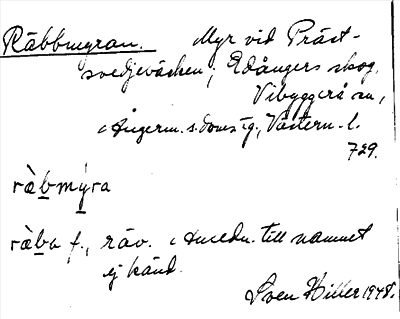 Räbbmyran. Myr vid Präst-
svedjeväcken, Edångers skog,
Vibyggerå sn,
Ångerm. s. doms-g., Västern. l.
729.
ràb̲mýra
ràb̲a f., räv. Anledn. till namnet
ej känd.
Sven Hiller 1948.